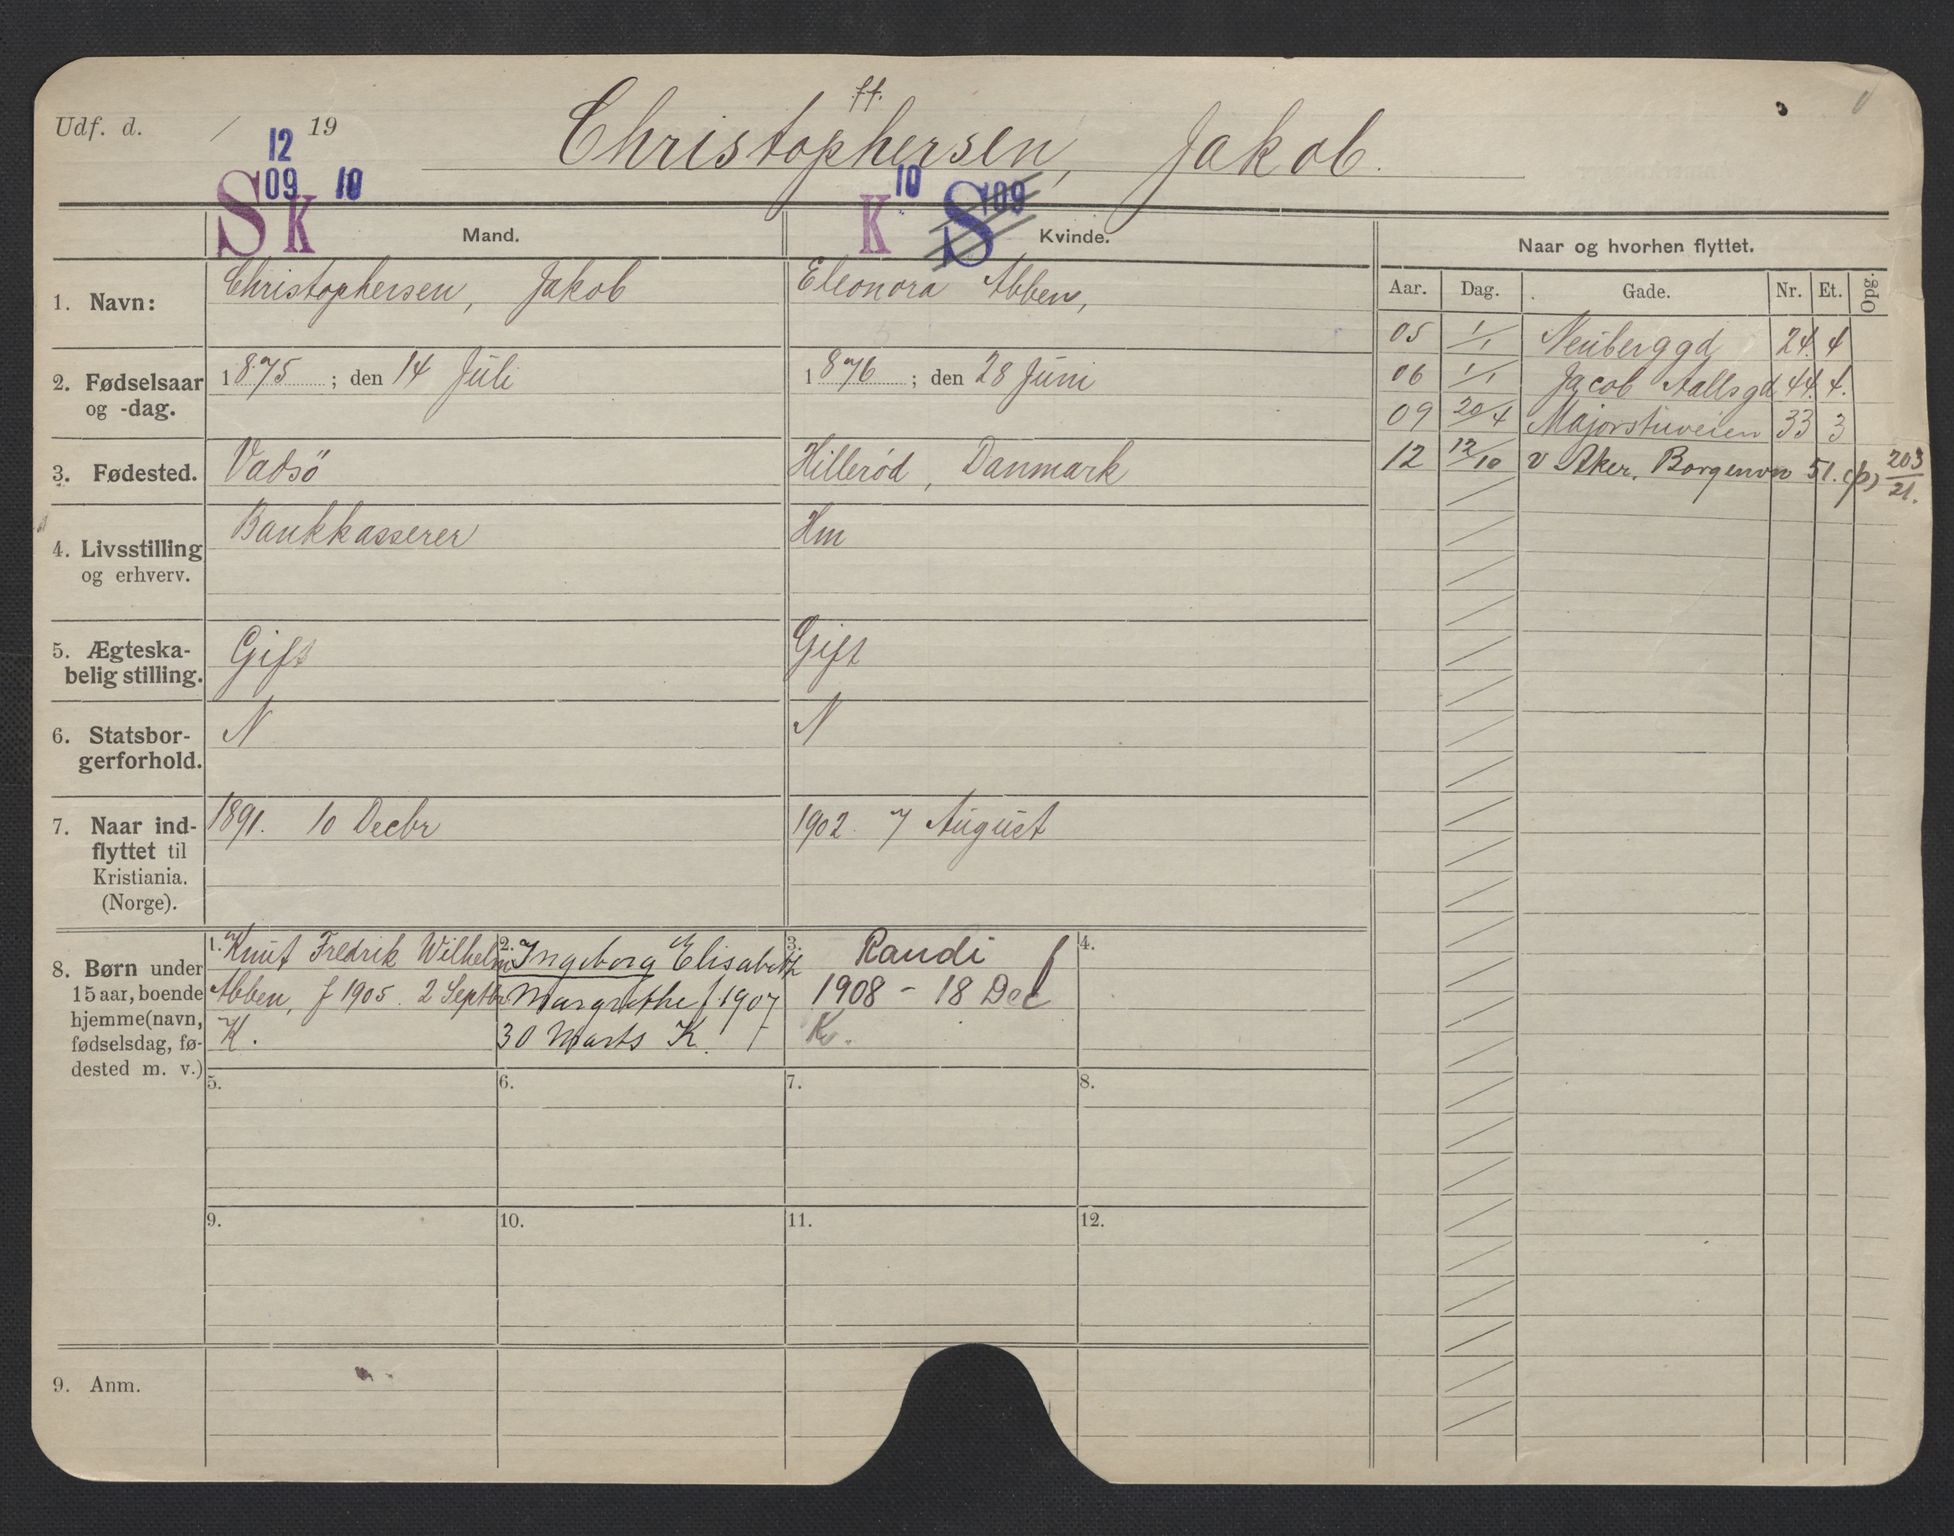 ff.
Udf. d. / 19 Christophersen, Jakob.
12
S 09 K 10 K 10 S 109
Mand. Kvinde. Naar og hvorhen flyttet.
Aar. Dag. Gade. Nr. Et. Opg.
1. Navn: Christophersen, Jakob Eleonora Abben,
05 1/1 Neuberggd 24. 4
06 1/1 Jacob Aallsgd 44. 4.
09 20/4 Majorstuveien 33 3
12 12/10 v Aker. Borgenvn 51. (p) 203/21.
2. Fødselsaar 1875 ; den 14 Juli 1876 ; den 28 Juni
og -dag.
3. Fødested. Vadsö Hilleröd, Danmark
4. Livsstilling Bankkasserer Hm
og erhverv.
5. Ægteska- Gift Gift
belig stilling.
6. Statsbor- N N
gerforhold.
7. Naar ind- 1891. 10 Decbr 1902. 7 August
flyttet til
Kristiania.
(Norge).
8. Børn under
15 aar, boende
hjemme (navn,
fødselsdag, fø-
dested m. v.)
1. Knut Fredrik Wilhelm
Abben, f 1905. 2 Septbr
K.
2. Ingeborg Elisabeth
Margrethe f. 1907
30 Marts K.
3. Randi f
1908 - 18 Dec
K.
4.
5. 6. 7. 8.
9. 10. 11. 12.
9. Anm.